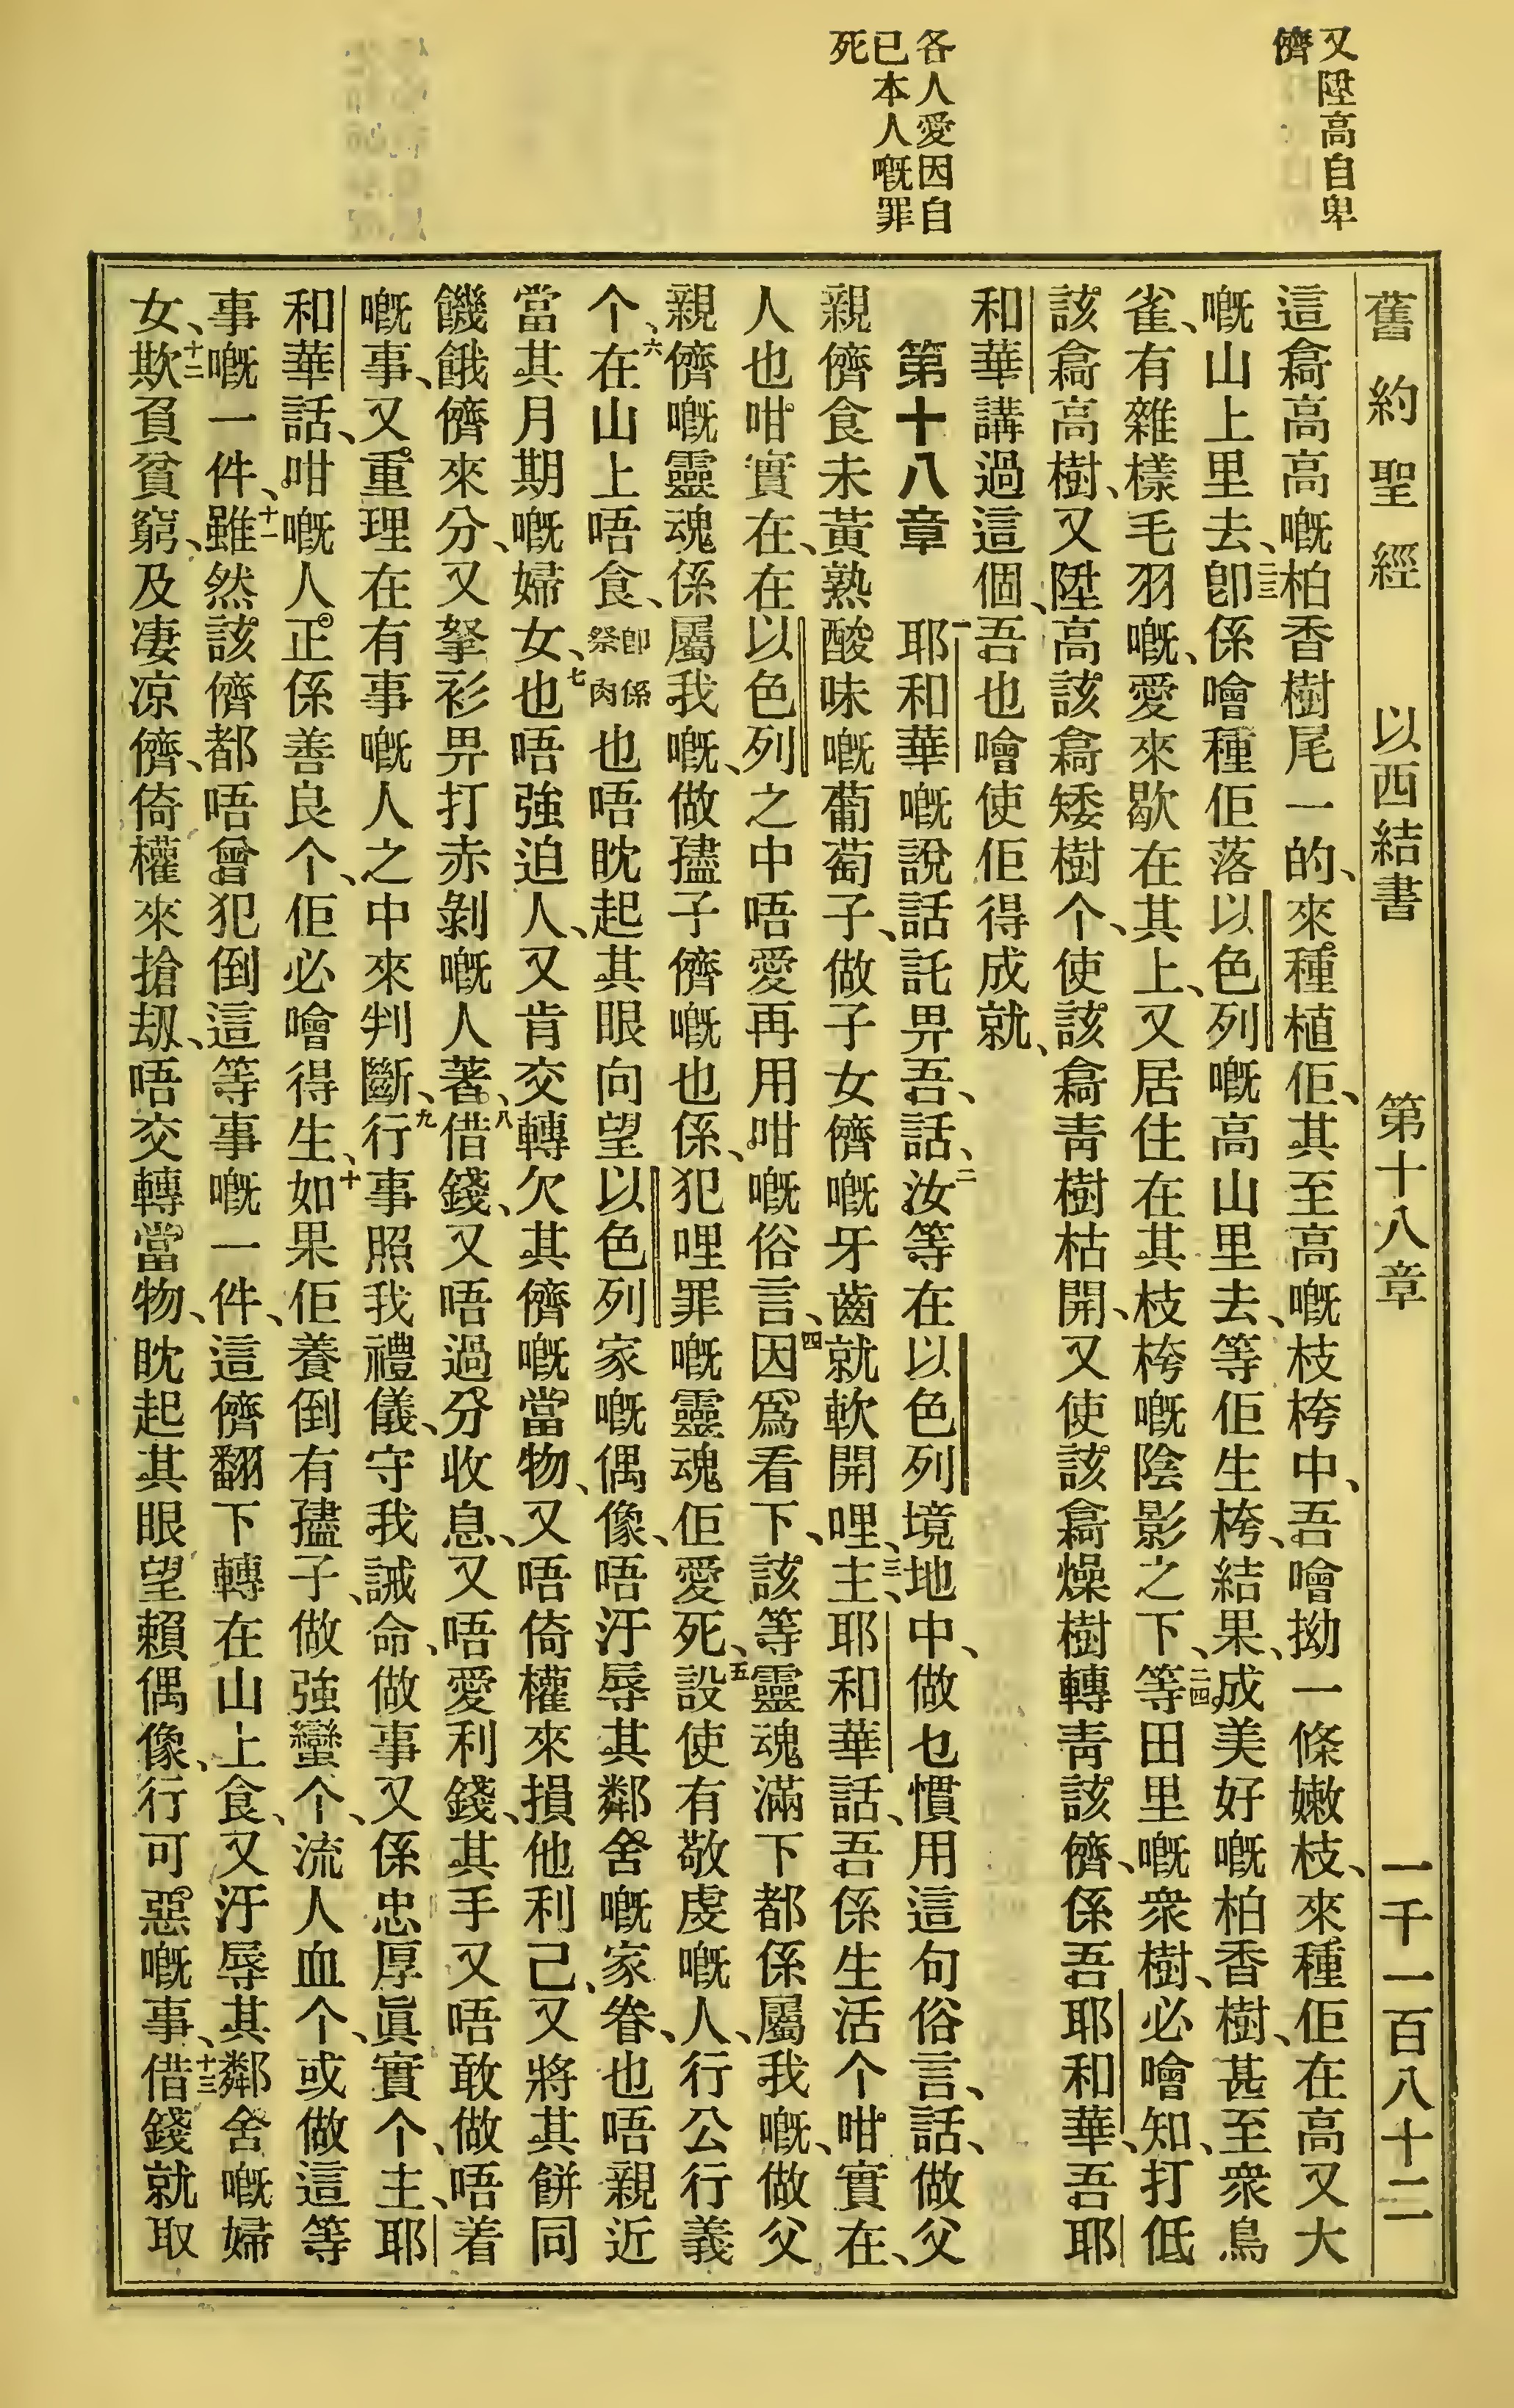 又陞高自卑
儕
各人愛因自
已本人嘅罪
死
舊約聖經 以西結書 第十八章 一千一百八十二
這樖高高嘅柏香樹尾一的、來種植佢、其至高嘅枝桍中、吾噲拗一條嫩枝、來種佢在高又大
嘅山上里去、二三卽係噲種佢落以色列嘅高山里去、等佢生桍、結果、成美好嘅柏香樹、甚至衆鳥
雀、有雜樣毛羽嘅、愛來歇在其上、又居住在其枝桍嘅陰影之下、二四等田里嘅衆樹、必噲知、打低
該樖高樹、又陞高該樖矮樹个、使該樖靑樹枯開、又使該樖燥樹轉靑該儕、係吾耶和華、吾耶
和華講過這個、吾也噲使佢得成就、
第十八章 一耶和華嘅說話託畀吾、話、二汝等在以色列境地中、做乜慣用這句俗言、話、做父
親儕食未黃熟酸味嘅葡萄子、做子女儕嘅牙齒就軟開哩、三主、耶和華話、吾係生活个咁實在、
人也咁實在、在以色列之中唔愛再用咁嘅俗言、四因爲看下、該等靈魂滿下都係屬我嘅、做父
親儕嘅靈魂係屬我嘅、做孻子儕嘅也係、犯哩罪嘅靈魂佢愛死、五設使有敬虔嘅人、行公行義
个、六在山上唔食、卽係祭肉也唔眈起其眼向望以色列家嘅偶像、唔汙辱其鄰舍嘅家眷、也唔親近
當其月期嘅婦女、七也唔强迫人、又肯交轉欠其儕嘅當物、又唔倚權來損他利己、又將其餠同
饑餓儕來分、又拏衫畀打赤剝嘅人著、八借錢、又唔過分收息、又唔愛利錢、其手又唔敢做唔着
嘅事、又重理在有事嘅人之中來判斷、九行事照我禮儀、守我誡命、做事又係忠厚眞實个、主、耶
和華話、咁嘅人正係善良个、佢必噲得生、十如果佢養倒有孻子、做强蠻个、流人血个、或做這等
事嘅一件、十一雖然該儕都唔曾犯倒這等事嘅一件、這儕翻下轉在山上食、又汙辱其鄰舍嘅婦
女、十二欺負貧窮、及凄凉儕、倚權來搶刼、唔交轉當物、眈起其眼望賴偶像、行可惡嘅事、十三借錢就取